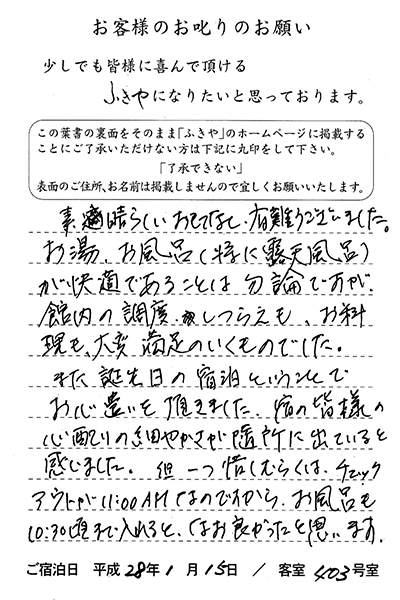 お客様のお叱りのお願い
少しでも皆様に喜んで頂ける
ふきやになりたいと思っております。
この葉書の裏面をそのまま「ふきや」のホームページに掲載する
ことにご了承いただけない方は下記に丸印をして下さい。
「了承できない」
表面のご住所、お名前は掲載しませんので宜しくお願いいたします。
素晴らしいおもてなし、有難うございました。
お湯、お風呂(特に露天風呂)
が快適であることは勿論ですが、
館内の調度、しつらえも、お料
理も、大変満足のいくものでした。
また誕生日の宿泊ということで
お心遣いを頂きました。宿の皆様の
心配りの細やかさが随所に出ていると
感じました。但一つ惜しむらくは、チェック
アウトが11:00AMなのですから、お風呂も
10:30頃まで入れると、なお良かったと思います。
ご宿泊日 平成28年1月15日 / 客室 403号室